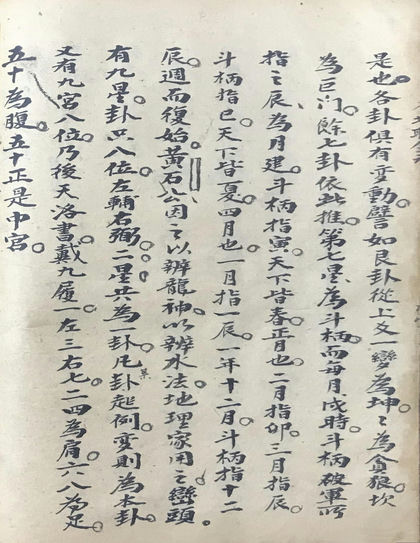 是也。各卦俱有变動。譬如艮卦從上文一變為坤。々為貪狼坎
為巨门。餘七卦依此推。第七星。為斗柄。而每月戌時。斗柄破軍所
指之辰、為月建。斗柄指寅。天下皆春。正月也。二月指卯。三月指辰。
斗柄指巳。天下皆夏。四月也。一月指一辰。一年十二月。斗柄指十二
辰。週而復始。黃石公因之以辨龍神。以辨水法。地理家用之巒頭。
有九星。卦只八位。左輔右弼。二星共為一卦。凡卦起例。变則為本卦。
又有九宮八位。乃後天洛書。戴九履一。左三右七。二四為肩。六八為足。
五十為腹。五十正是中宮。